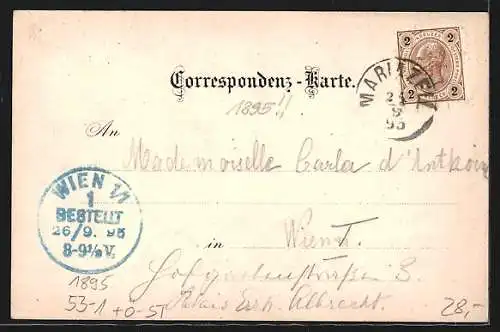 2 2
2 2
MARIAZELL
25
9
95
Correspondenz-Karte.
1895!!
An
Mademoiselle Carla d'
WIEN 1/1
1
BESTELLT
26/9. 95
8-9½V.
in Wien I.
Hofgartenstraße 3.
Palais Erzh. Albrecht.
1895
53-1 +0-ST
28,-